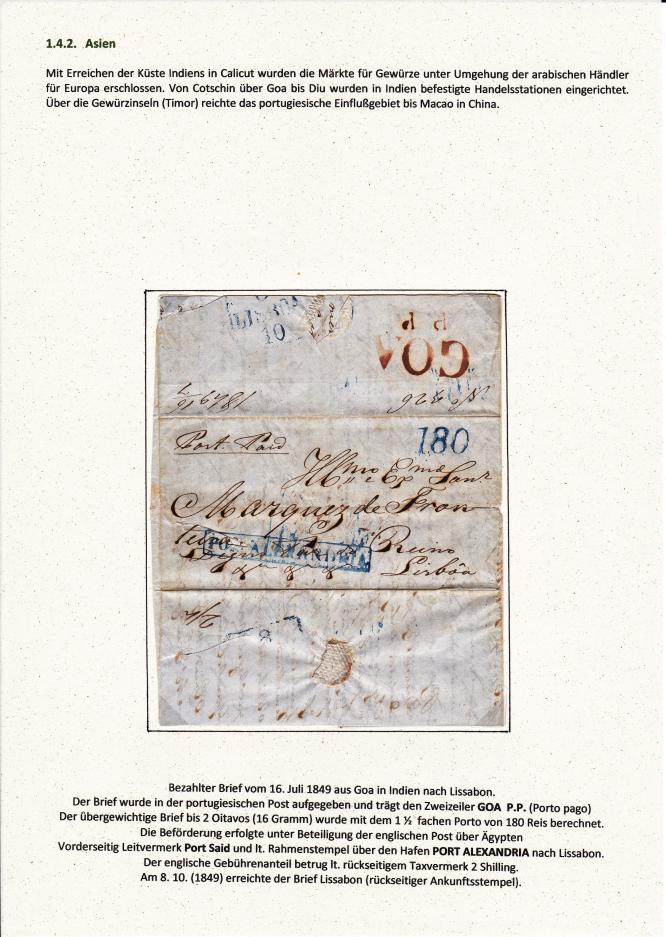 1.4.2. Asien
Mit Erreichen der Küste Indiens in Calicut wurden die Märkte für Gewürze unter Umgehung der arabischen Händler
für Europa erschlossen. Von Cotschin über Goa bis Diu wurden in Indien befestigte Handelsstationen eingerichtet.
Über die Gewürzinseln (Timor) reichte das portugiesische Einflußgebiet bis Macao in China.
LISBOA
10
P. P.
GOA
1849
Port Paid
180
Illmo e Exmo Senr
Marquez de Fron
teira
Reino
PO ALEXANDRIA
Lisbôa
Bezahlter Brief vom 16. Juli 1849 aus Goa in Indien nach Lissabon.
Der Brief wurde in der portugiesischen Post aufgegeben und trägt den Zweizeiler GOA P.P. (Porto pago)
Der übergewichtige Brief bis 2 Oitavos (16 Gramm) wurde mit dem 1 ½ fachen Porto von 180 Reis berechnet.
Die Beförderung erfolgte unter Beteiligung der englischen Post über Ägypten
Vorderseitig Leitvermerk Port Said und lt. Rahmenstempel über den Hafen PORT ALEXANDRIA nach Lissabon.
Der englische Gebührenanteil betrug lt. rückseitigem Taxvermerk 2 Shilling.
Am 8. 10. (1849) erreichte der Brief Lissabon (rückseitiger Ankunftsstempel).